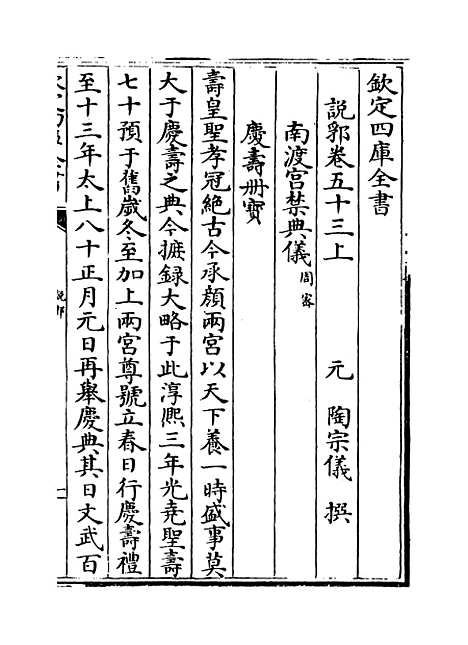 欽定四庫全書
說郛卷五十三上
元 陶宗儀 撰
南渡宮禁典儀 周密
慶壽册寳
壽皇聖孝冠絶古今承顔兩宮以天下養一時盛事莫
大于慶壽之典今摭録大略于此淳熙三年光堯聖壽
七十預于舊歲冬至加上兩宮尊號立春日行慶壽禮
至十三年太上八十正月元日再舉慶典其日文武百
說郛